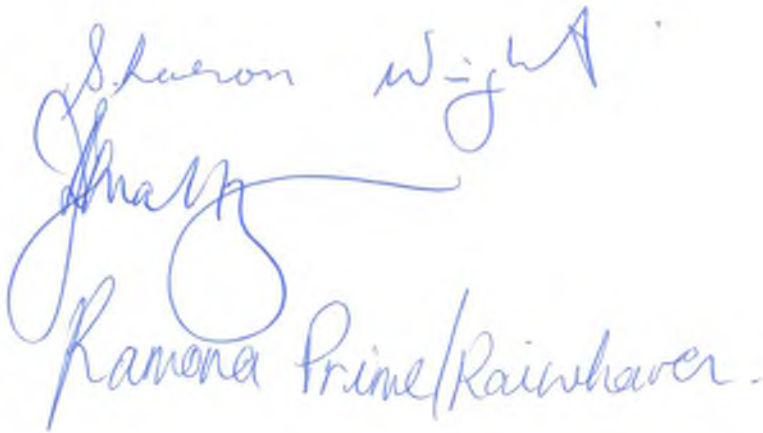 Sharon Wright
Ramona Prime/Rainshaver.